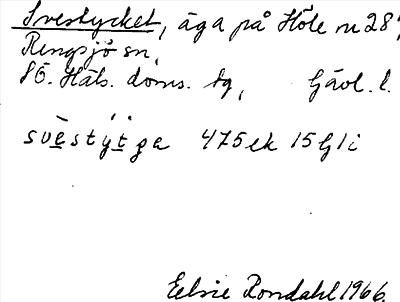 Svestycket, äga på Höle nr 28,
Ringsjö sn,
SÖ. Häls. doms. tg, Gävl. l.
svèstýtga 475ek 15G1i
Eelsie Rondahl 1966.